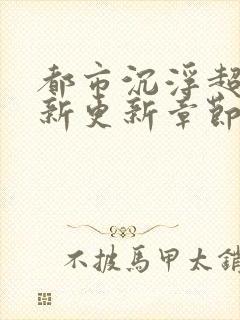 都市沉浮超
新更新章節
不披馬甲太銷